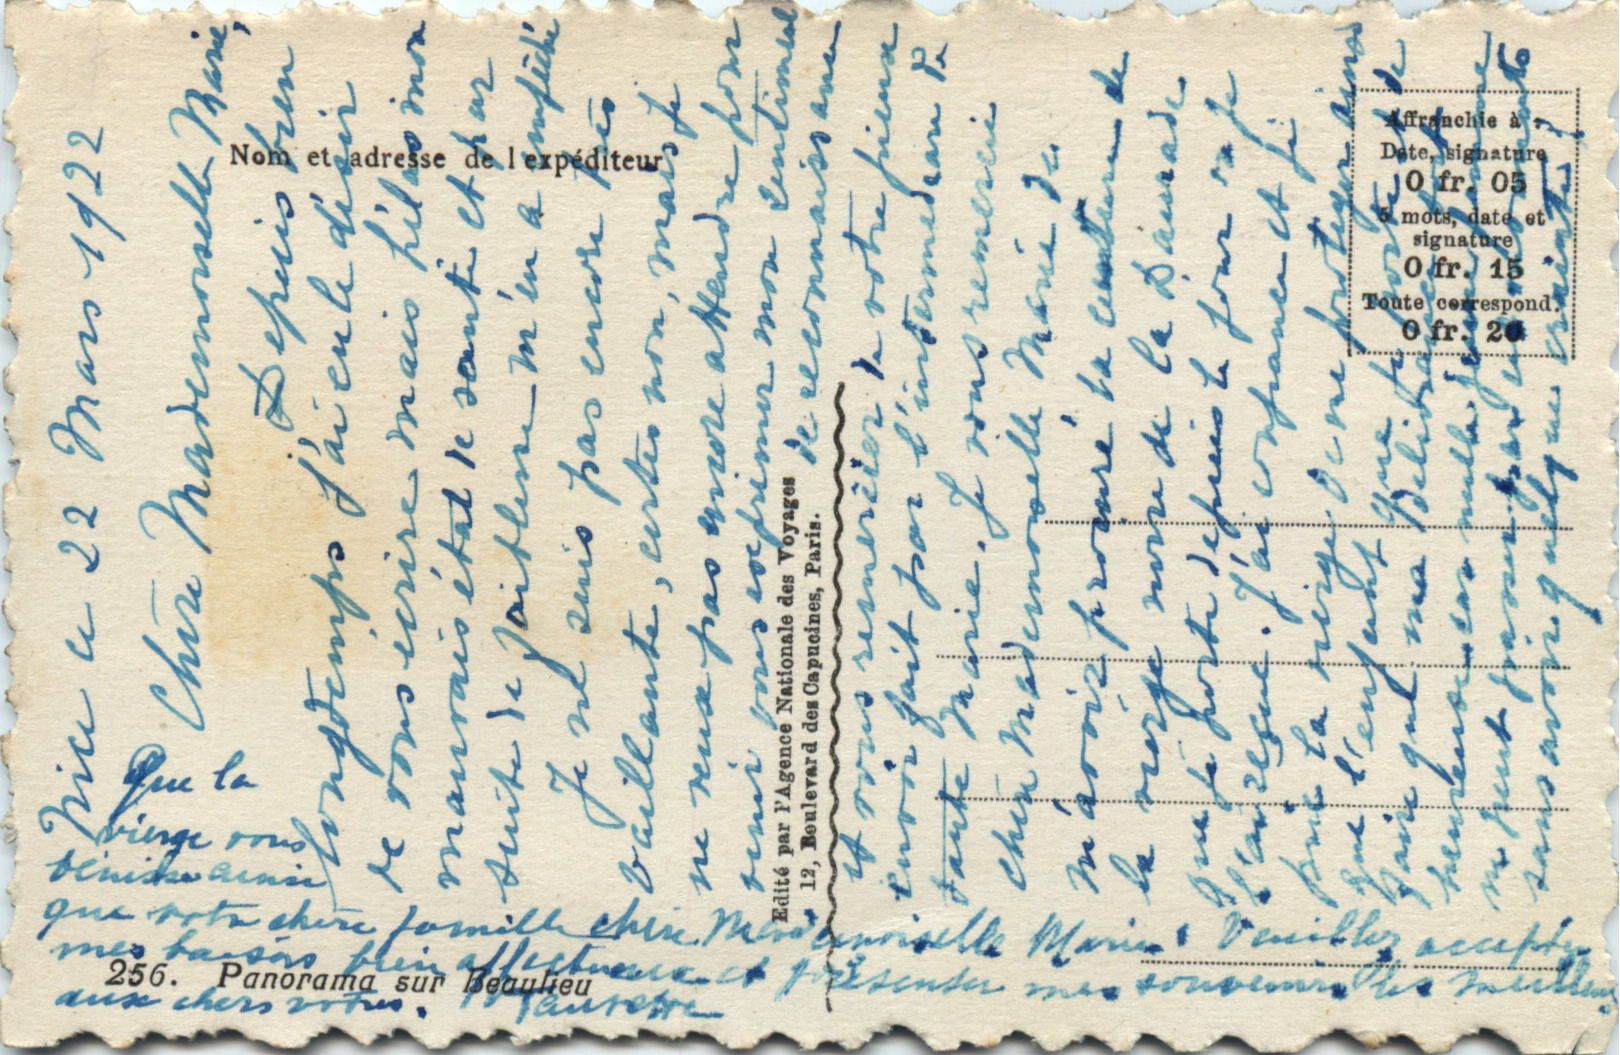 Nice ce 22 Mars 1922
Chère Mademoiselle Marie,
Depuis bien
longtemps j'ai eu le désir
de vous écrire mais hélas mon
mauvais état de santé et par
suite de faiblesse m'en a empêché
Je ne suis pas encore très
vaillante, certes non, mais je
ne veux pas encore attendre pour
venir vous exprimer mon sentiment
de reconnaissance
et vous remercier de votre
envoi fait par l'intermédiaire de
tante Marie. Je vous remercie
chère Mademoiselle Marie de
m'avoir procuré la ceinture de
la vierge noire de la Daurade
que je porte depuis le jour où je
l'ai reçue. J'ai confiance et j'ai
prié la vierge de me protéger ainsi
que l'enfant que je porte et de
faire que ma délivrance soit
heureuse car nulle jeune femme
ne peut passer par ces moments
sans avoir quelque crainte!
Que la
vierge vous
bénisse ainsi
que votre chère famille chère Mademoiselle Marie. Veuillez accepter
mes baisers bien affectueux et présenter mes souvenirs les meilleurs
aux chers vôtres.
Nom et adresse de l'expéditeur
Edité par l'Agence Nationale des Voyages
12, Boulevard des Capucines, Paris.
Affranchie à :
Date, signature
0 fr. 05
5 mots, date et
signature
0 fr. 15
Toute correspond.
0 fr. 20
256. Panorama sur Beaulieu